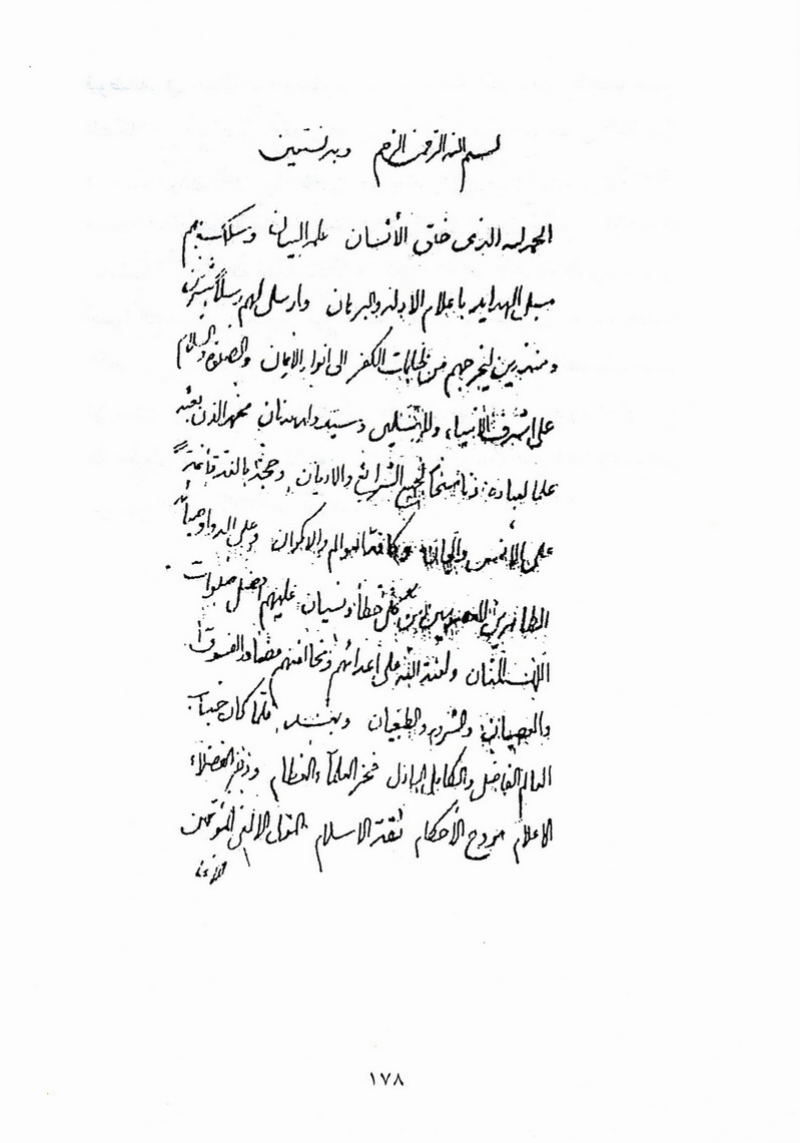 بسم الله الرحمن الرحيم وبه نستعين
الحمد لله الذى خلق الأنسان علمه البيان وسلك بهم
سبل الهداية باعلام الأدلة والبرهان وارسل لهم رسلاً مبشرين
ومنذرين ليخرجهم من ظلمات الكفر الى انوار الأيمان والصلوة والسلام
على اشرف الأنبياء وسيد ولد عدنان محمد الذى بعثه
علما لعباده ناسخاً لجميع الشرائع والاديان وحجة بالغة
على الأنس والجان وكافة العوالم والاكوان وعلى اله
الطاهرين المعصومين من كل خطأ ونسيان عليهم افضل صلوات
الله المنان ولعنة الله على اعدائهم ومخالفيهم الفسوق
والعصيان والطغيان وبعد فلما كان جناب
العالم الفاضل والكامل الباذل فخر العلمآء العظام وذخر الفضلاء
الاعلام مروج الأحكام ثقة الاسلام المؤتمن
١٧٨